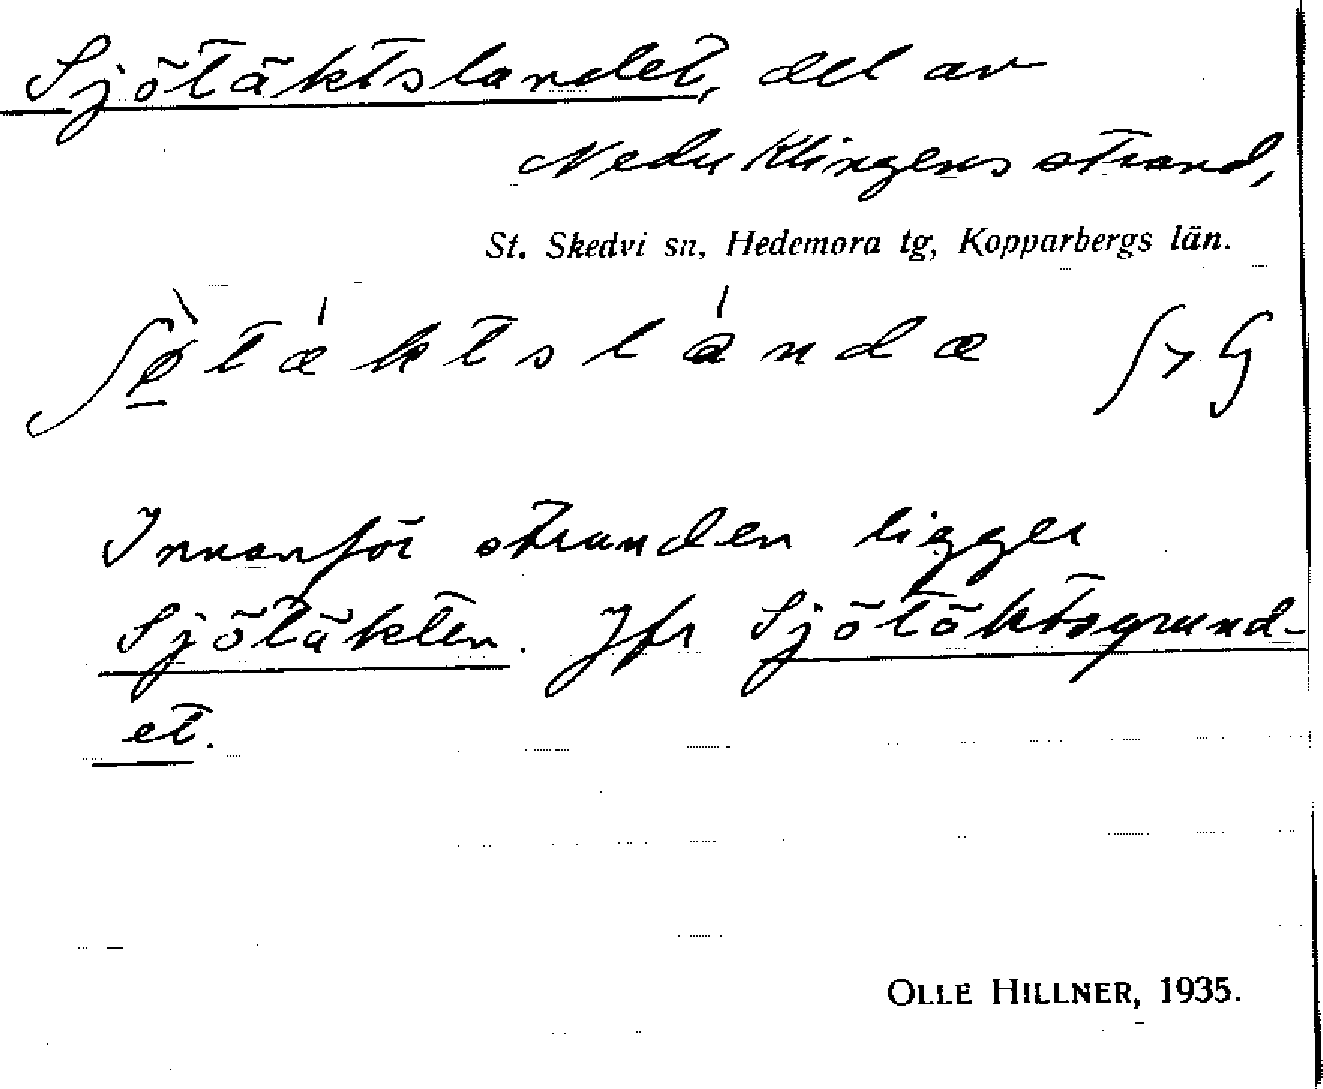 Sjötäktslandet, del av
Nedre Klingens strand,
St. Skedvi sn, Hedemora tg, Kopparbergs län.
ʃø̀tǽktslándæ
Innanför stranden ligger
Sjötäkten. Jfr Sjötäktsgrund-
et.
OLLE HILLNER, 1935.